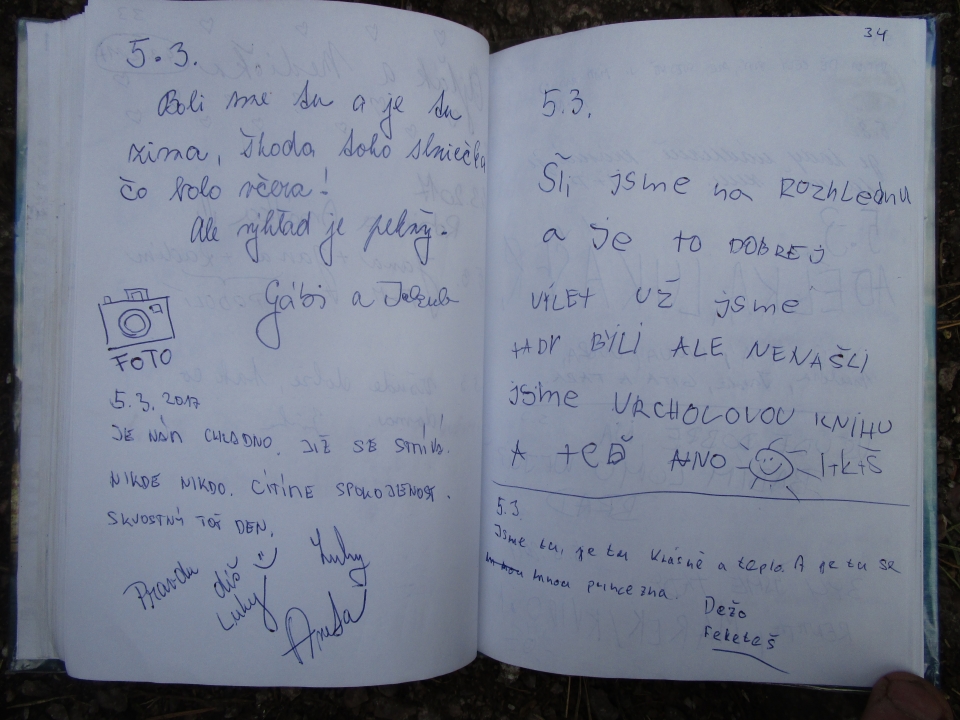 5.3.
Boli sme tu a je tu
zima, škoda toho slniečka
čo bolo včera!
Ale výhľad je pekný.
Gábi a Jakub
FOTO
5.3.2017
JE NÁM CHLADNO, JIŽ SE STMÍVÁ.
NIKDE NIKDO. CÍTÍME SPOKOJENOST.
SKVOSTNÝ TOŤ DEN.
Pravdu
díš
Luky
Luky
34
5.3.
Šli jsme na ROZHLEDNU
a je to DOBREJ
VÍLET UŽ jsme
tADY BYLI ALE NENAŠLI
jsme VRCHOLOVOU KNIHU
A teď ANO I+K+Š
5.3.
Jsme tu, je tu krásně a teplo. A je tu se
mnou princezna.
Dežo
Feketeš